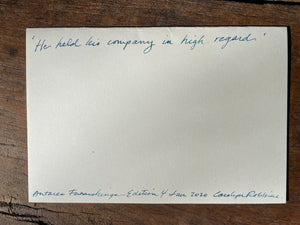 'He held his company in high regard'
Antares Edition 4 Jan 2020 Carolyn